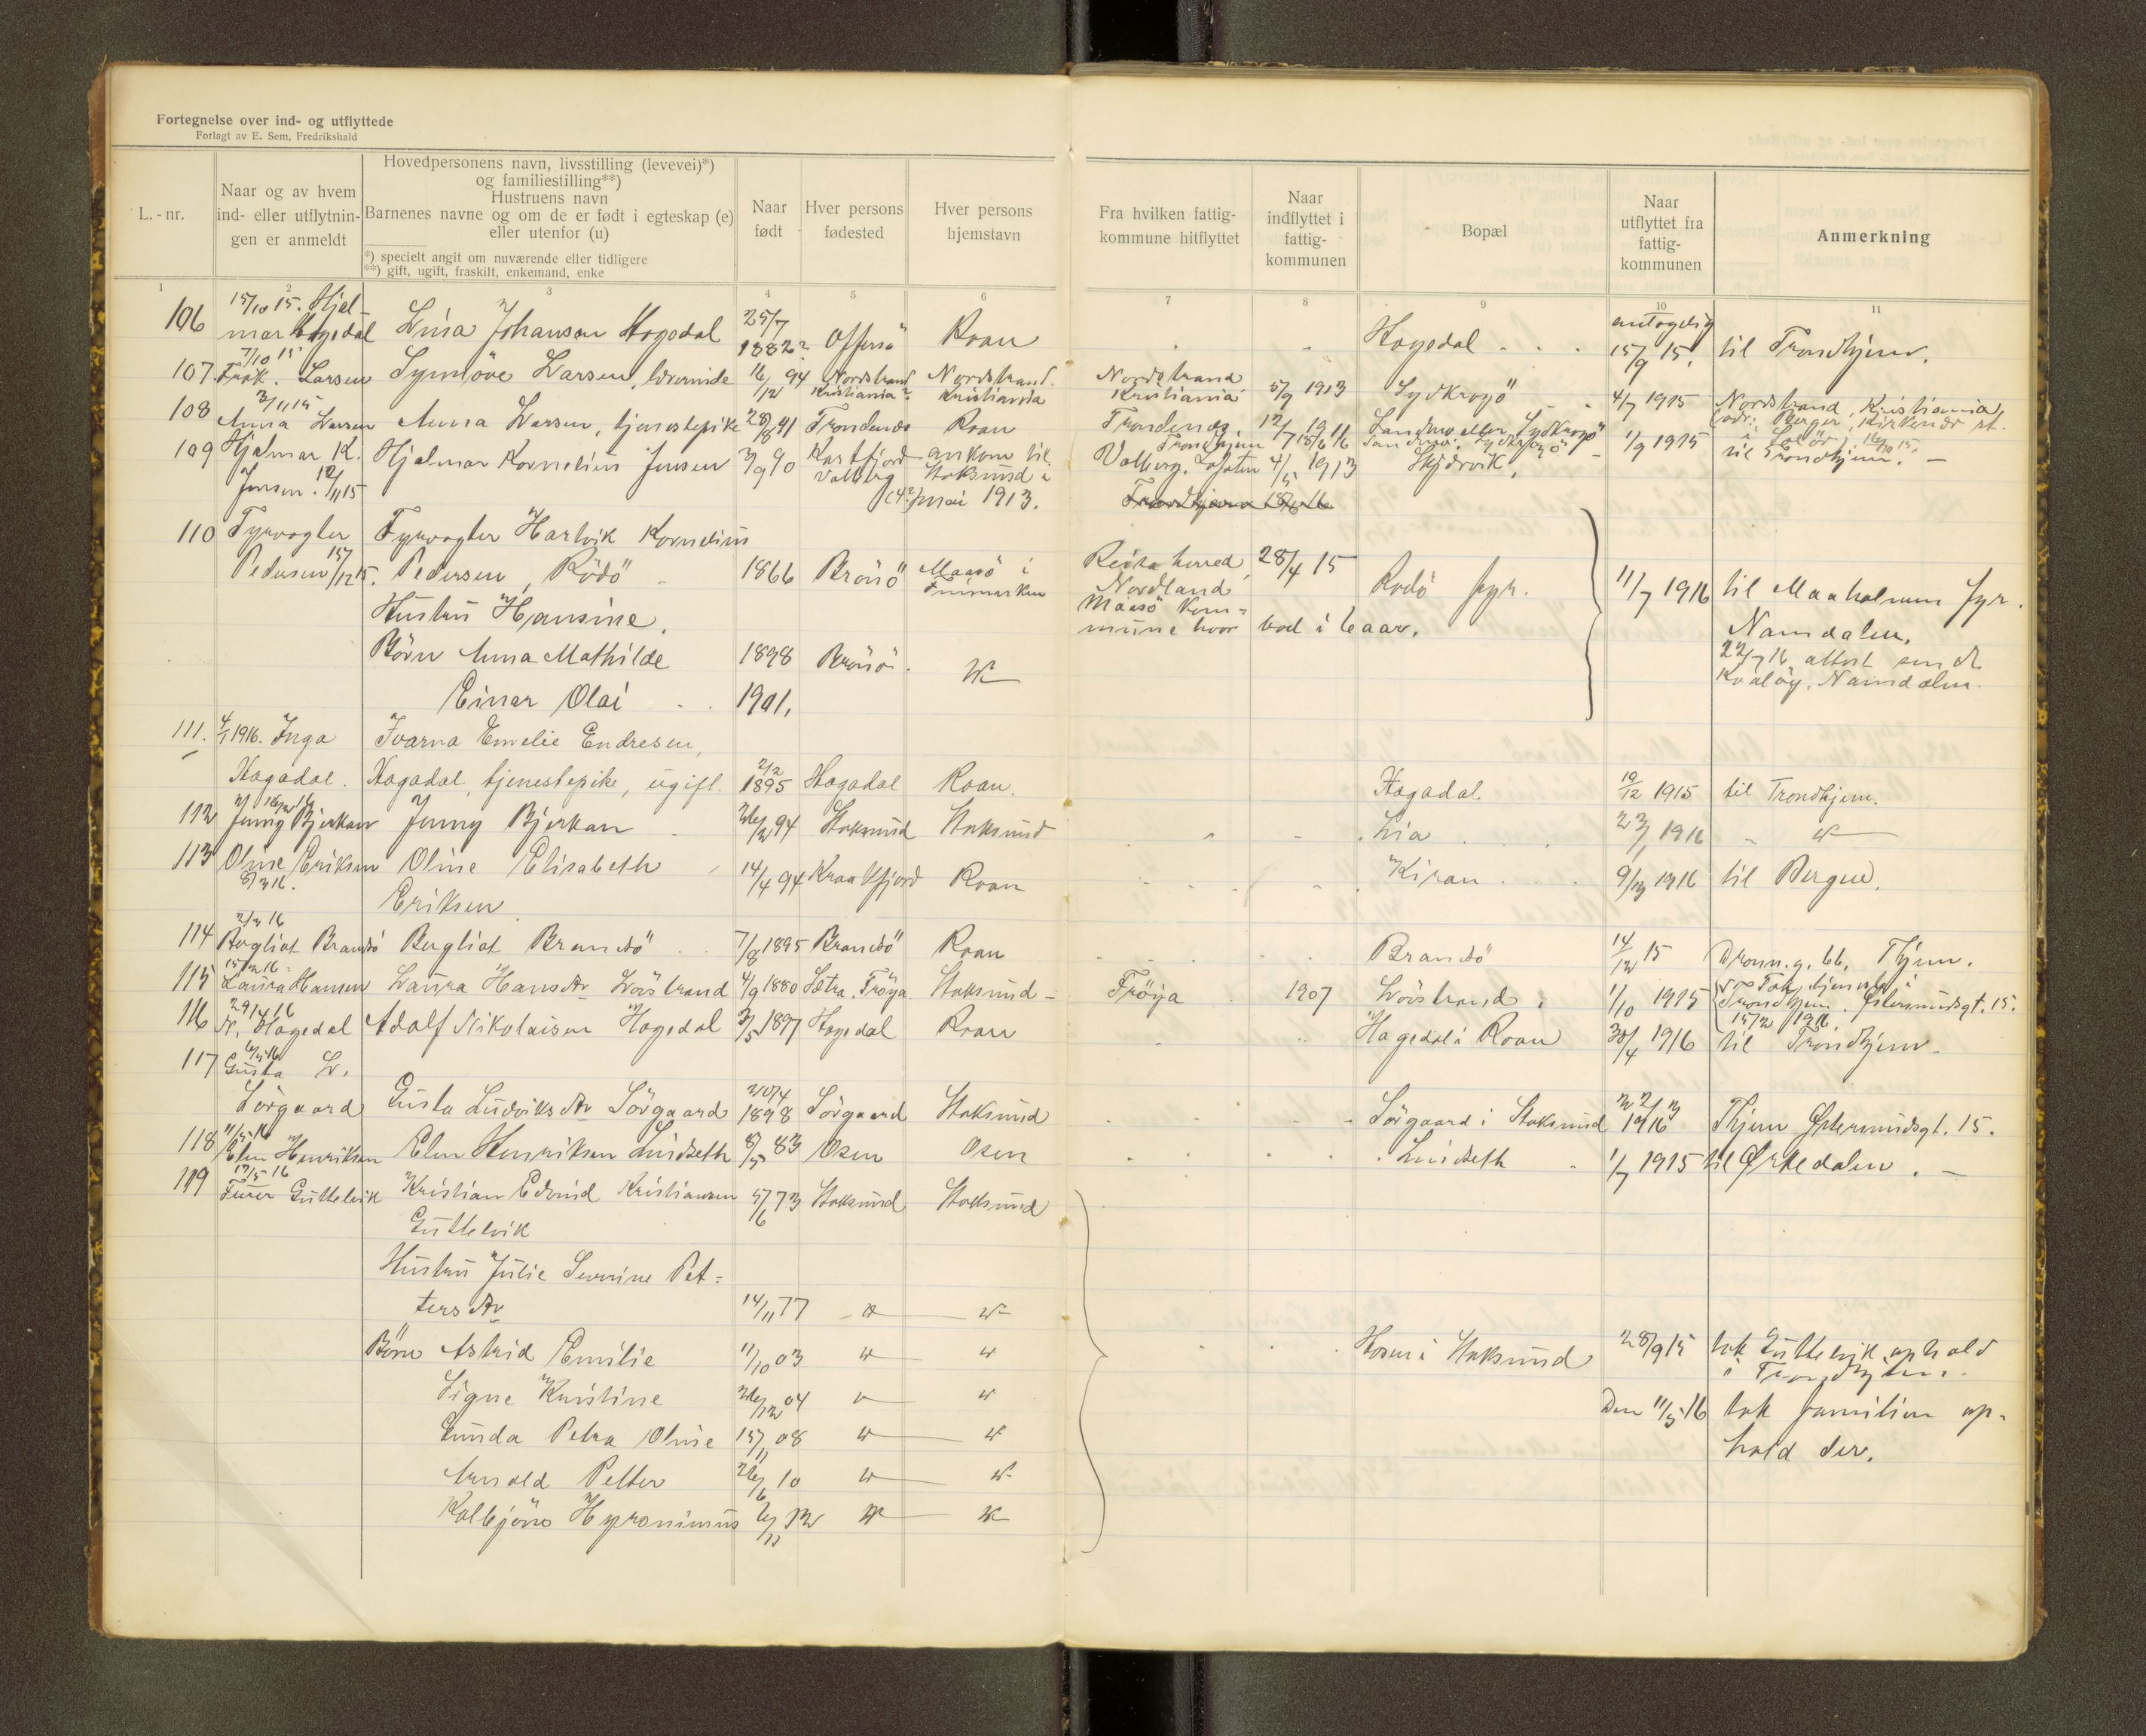 Fortegnelse over ind- og utflyttede
Forlagt av E. Sem, Fredrikshald
L.-nr.
Naar og av hvem
ind- eller utflytnin-
gen er anmeldt
Hovedpersonens navn, livsstilling (levevei)*)
og familiestilling**)
Hustruens navn
Barnenes navne og om de er født i egteskap (e)
eller utenfor (u)
*) specielt angit om nuværende eller tidligere
**) gift, ugift, fraskilt, enkemand, enke
Naar
født
Hver persons
fødested
Hver persons
hjemstavn
Fra hvilken fattig-
kommune hitflyttet
Naar
indflyttet i
fattig-
kommunen
Bopæl
Naar
utflyttet fra
fattig-
kommunen
Anmerkning
1 2 3 4 5 6 7 8 9 10 11
106 15/10 15. Hjal-
mar Hagedal Lina Johansen Hagedal 25/7 1882? Offersö Roan Hagedal antagelig 15/9 15. til Trondhjem.
107. 7/10 15 Frøk. Larsen Synnöve Larsen, lærerinde 16/12 94 Nordstrand Kristiania? Nordstrand Kristiania Nordstrand Kristiania 5/9 1913 Sydkroyö 4/7 1915 Nordstrand, Kristiania
108 3/11 15 Anna Larsen Anna Larsen, tjenestepike 28/8 91 Trondenæs Roan Trondenæs 12/7 1911 Sandmo eller Sydkroyö
Trondhjem 18/6 16
109 Hjalmar K. Jensen. 12/11 15 Hjalmar Kornelius Jensen 3/9 90 Kartfjord Valberg ankom til Stoksund i (4?) mai 1913. Valberg, Lofoten 4/5 1913 Skjærvik, 1/9 1915 til Trondhjem. 16/10 15.
Trondhjem 18/6 16
110 Fyrvogter Pedersen 15/12 15. Fyrvogter Hartvik Kornelius
Pedersen, Rödö 1866 Brönö Maasö i Finmarken Reisa herred, Nordland 28/4 15 Rodö fyr. 11/7 1916 til Maaholmen fyr.
Namdalen.
Maasö kom-
mune hvor bod i 6 aar.
Hustru Hansine.
22/7 16 attest sendt
Kvaløy, Namdalen.
Börn Anna Mathilde 1898 Brönö
Einar Olai 1901.
111. 4/1 1916. Inga Hagadal. Ivarna Emelie Endresen,
Hagadal, tjenestepike, ugift. 2/2 1895 Hagadal Roan. Hagadal. 19/12 1915 til Trondhjem.
112 Jenny Bjerkan Jenny Bjerkan 26/12 94 Stoksund Stoksund Lia 23/1 1916
113 Oline Eriksen 8/3 16. Oline Elisabeth
Eriksen 14/4 94 Kraakfjord Roan Kiran 9/3 1916 til Bergen.
114 2/3 16 Bergliot Brandsö Bergliot Brandsö 7/8 1895 Brandsö Roan Brandsö 14/12 15 Dronn. g. 66, Thjem.
115 Laura Hansen Laura Hansdtr Lövstrand 4/9 1880 Sætra, Fröya Stoksund Fröya 1907 Lövstrand 1/10 1915 Tok tjeneste i
Trondhjem. Østersundsgt. 15.
116 29/4 16 N. Hagedal Adolf Nikolaisen Hagedal 3/5 1897 Hagedal Roan Hagedal i Roan 30/4 1916 til Trondhjem
117 6/5 16 Gusta L. Sörgaard Gusta Ludviksdtr Sörgaard 20/4 1898 Sörgaard Stoksund Sörgaard i Stoksund 22/3 1916 Thjem Østersundsgt. 15.
118 11/5 16 Elen Henriksen Elen Henriksen Lindseth 8/5 83 Osen Osen Lindseth 1/7 1915 til Ørkedalen.
119 12/5 16 Furer Guttelvik Kristian Edvind Kristiansen
Guttelvik 5/6 73 Stoksund Stoksund
Hustru Julie Severine Pet-
tersdtr 14/11 77
Börn Astrid Emilie 11/10 03 Hosen i Stoksund 28/9 15 tok Guttelvik ophold
i Trondhjem.
Signe Kristine 26/12 04 Den 11/5 16 tok familien op-
Gunda Petra Oline 15/11 08 hold der.
Arnold Petter 26/6 10
Kolbjörn Hyronimus 6/11 12